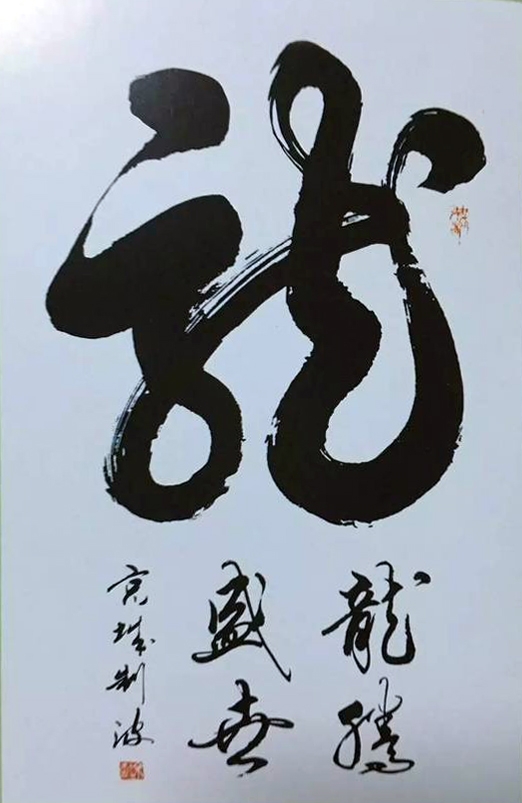 龍
龍騰
盛世
京城制波